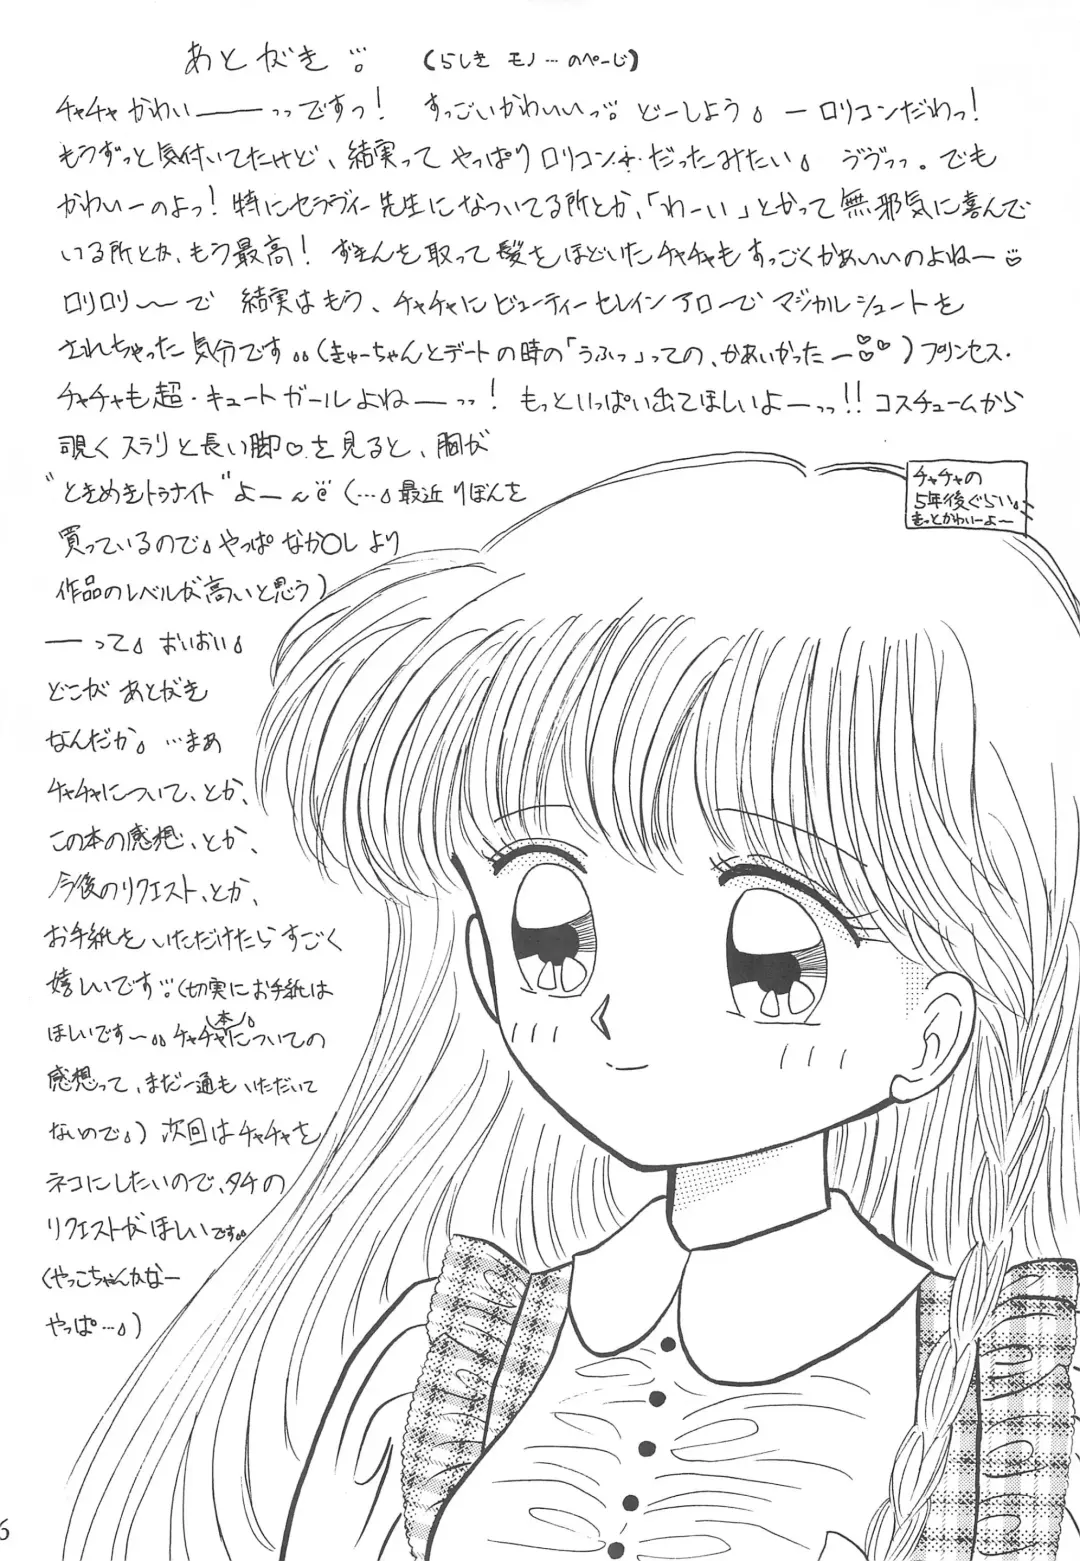 あとがき (らしき モノ…のぺーじ)
チャチャかわい――っっですっ! すっごいかわいいっ どーしよう ―ロリコンだわっ!
もうずっと気付いてたけど、結実って やっぱり ロリコン・だったみたい。 ゔゔっっ。でも
かわいーのよっ!特にセラヴィー先生になついてる所とか、「わーい」とかって無邪気に喜んで
いる所とか、もう最高! ずきんを取って髪をほどいたチャチャもすっごくかあいいのよねー♡
ロリロリ〜〜で 結実はもう、チャチャにビューティーセレインアローでマジカルシュートを
されちゃった気分です。。(きゅーちゃんとデートの時の「うふっ」っての、かあいかったー♡♡♡)プリンセス・
チャチャも超・キュートガールよねー―っっ! もっといっぱい出てほしいよーっっ!!コスチュームから
覗くスラリと長い脚♡を見ると、胸が
"ときめきトゥナイト"よーん (…。最近りぼんを
買っているので。やっぱなか〇しより
作品のレベルが高いと思う)
―って。おいおい。
どこがあとがき
なんだか。…まぁ
チャチャについて、とか、
この本の感想、とか、
今後のリクエスト、とか、
お手紙をいただけたらすごく
嬉しいです (切実にお手紙は
ほしいです〜。。チャチャ本についての
感想って、まだ一通もいただいて
ないので。)次回はチャチャを
ネコにしたいので、タチの
リクエストがほしいです。。
(やっこちゃんかなー
やっぱ…。)
チャチャの
5年後ぐらい。
きっとかわいーよ〜
6